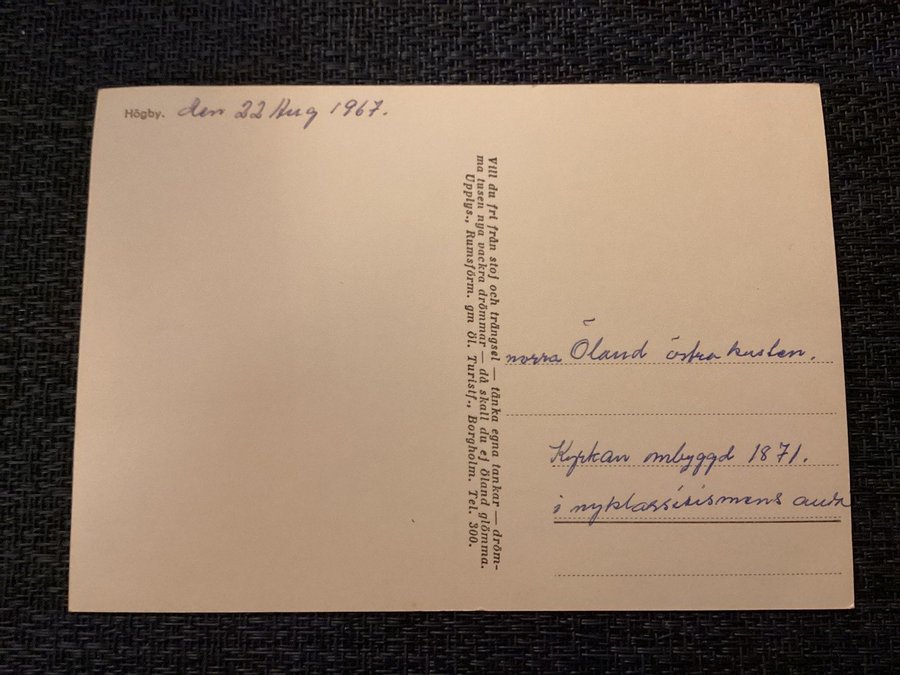 Högby. den 22 Aug 1967.
Vill du fri från stoj och trängsel — tänka egna tankar — dröm-
ma tusen nya vackra drömmar — då skall du ej Öland glömma.
Upplys., Rumsförm. gm Öl. Turistf., Borgholm. Tel. 300.
norra Öland östra kusten.
Kyrkan ombyggd 1871.
i nyklassisismens anda